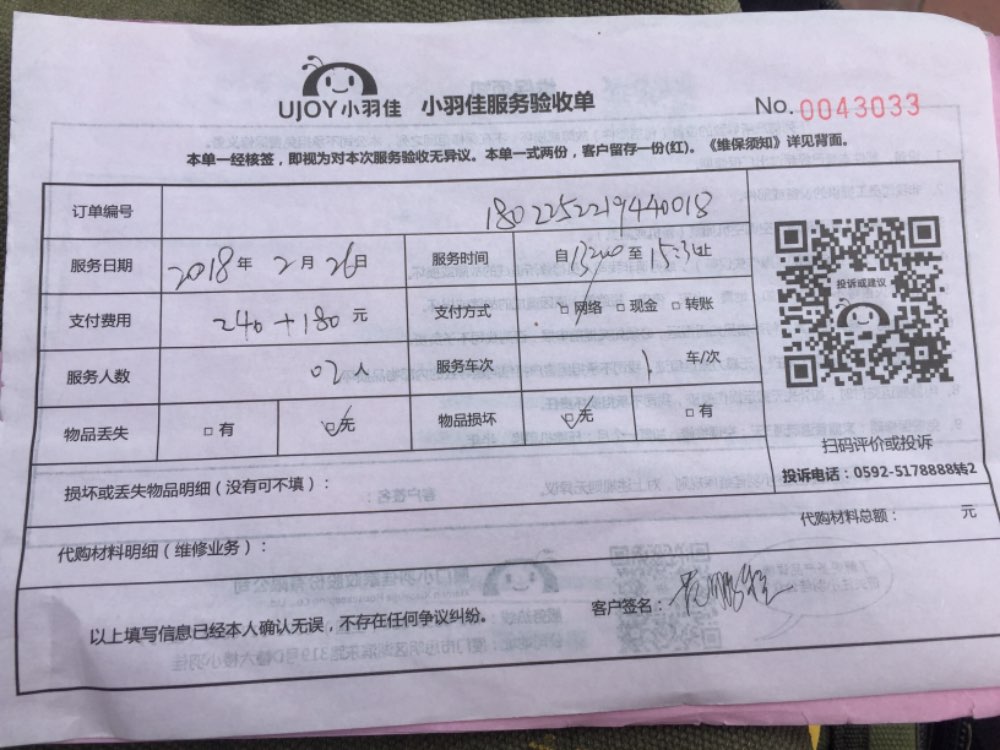 UJOY小羽佳 小羽佳服务验收单 No. 0043033
本单一经核签，即视为对本次服务验收无异议。本单一式两份，客户留存一份(红)。《维保须知》详见背面。
订单编号 180225221944 0018
服务日期 2018年 2月 26日 服务时间 自 至 止
支付费用 240+180 元 支付方式 □网络 □现金 □转账
服务人数 02人 服务车次 1 车/次
物品丢失 □有 ☑无 物品损坏 ☑无 □有
投诉或建议
扫码评价或投诉
投诉电话：0592-5178888转2
损坏或丢失物品明细（没有可不填）：
代购材料明细（维修业务）： 代购材料总额： 元
以上填写信息已经本人确认无误，不存在任何争议纠纷。 客户签名：